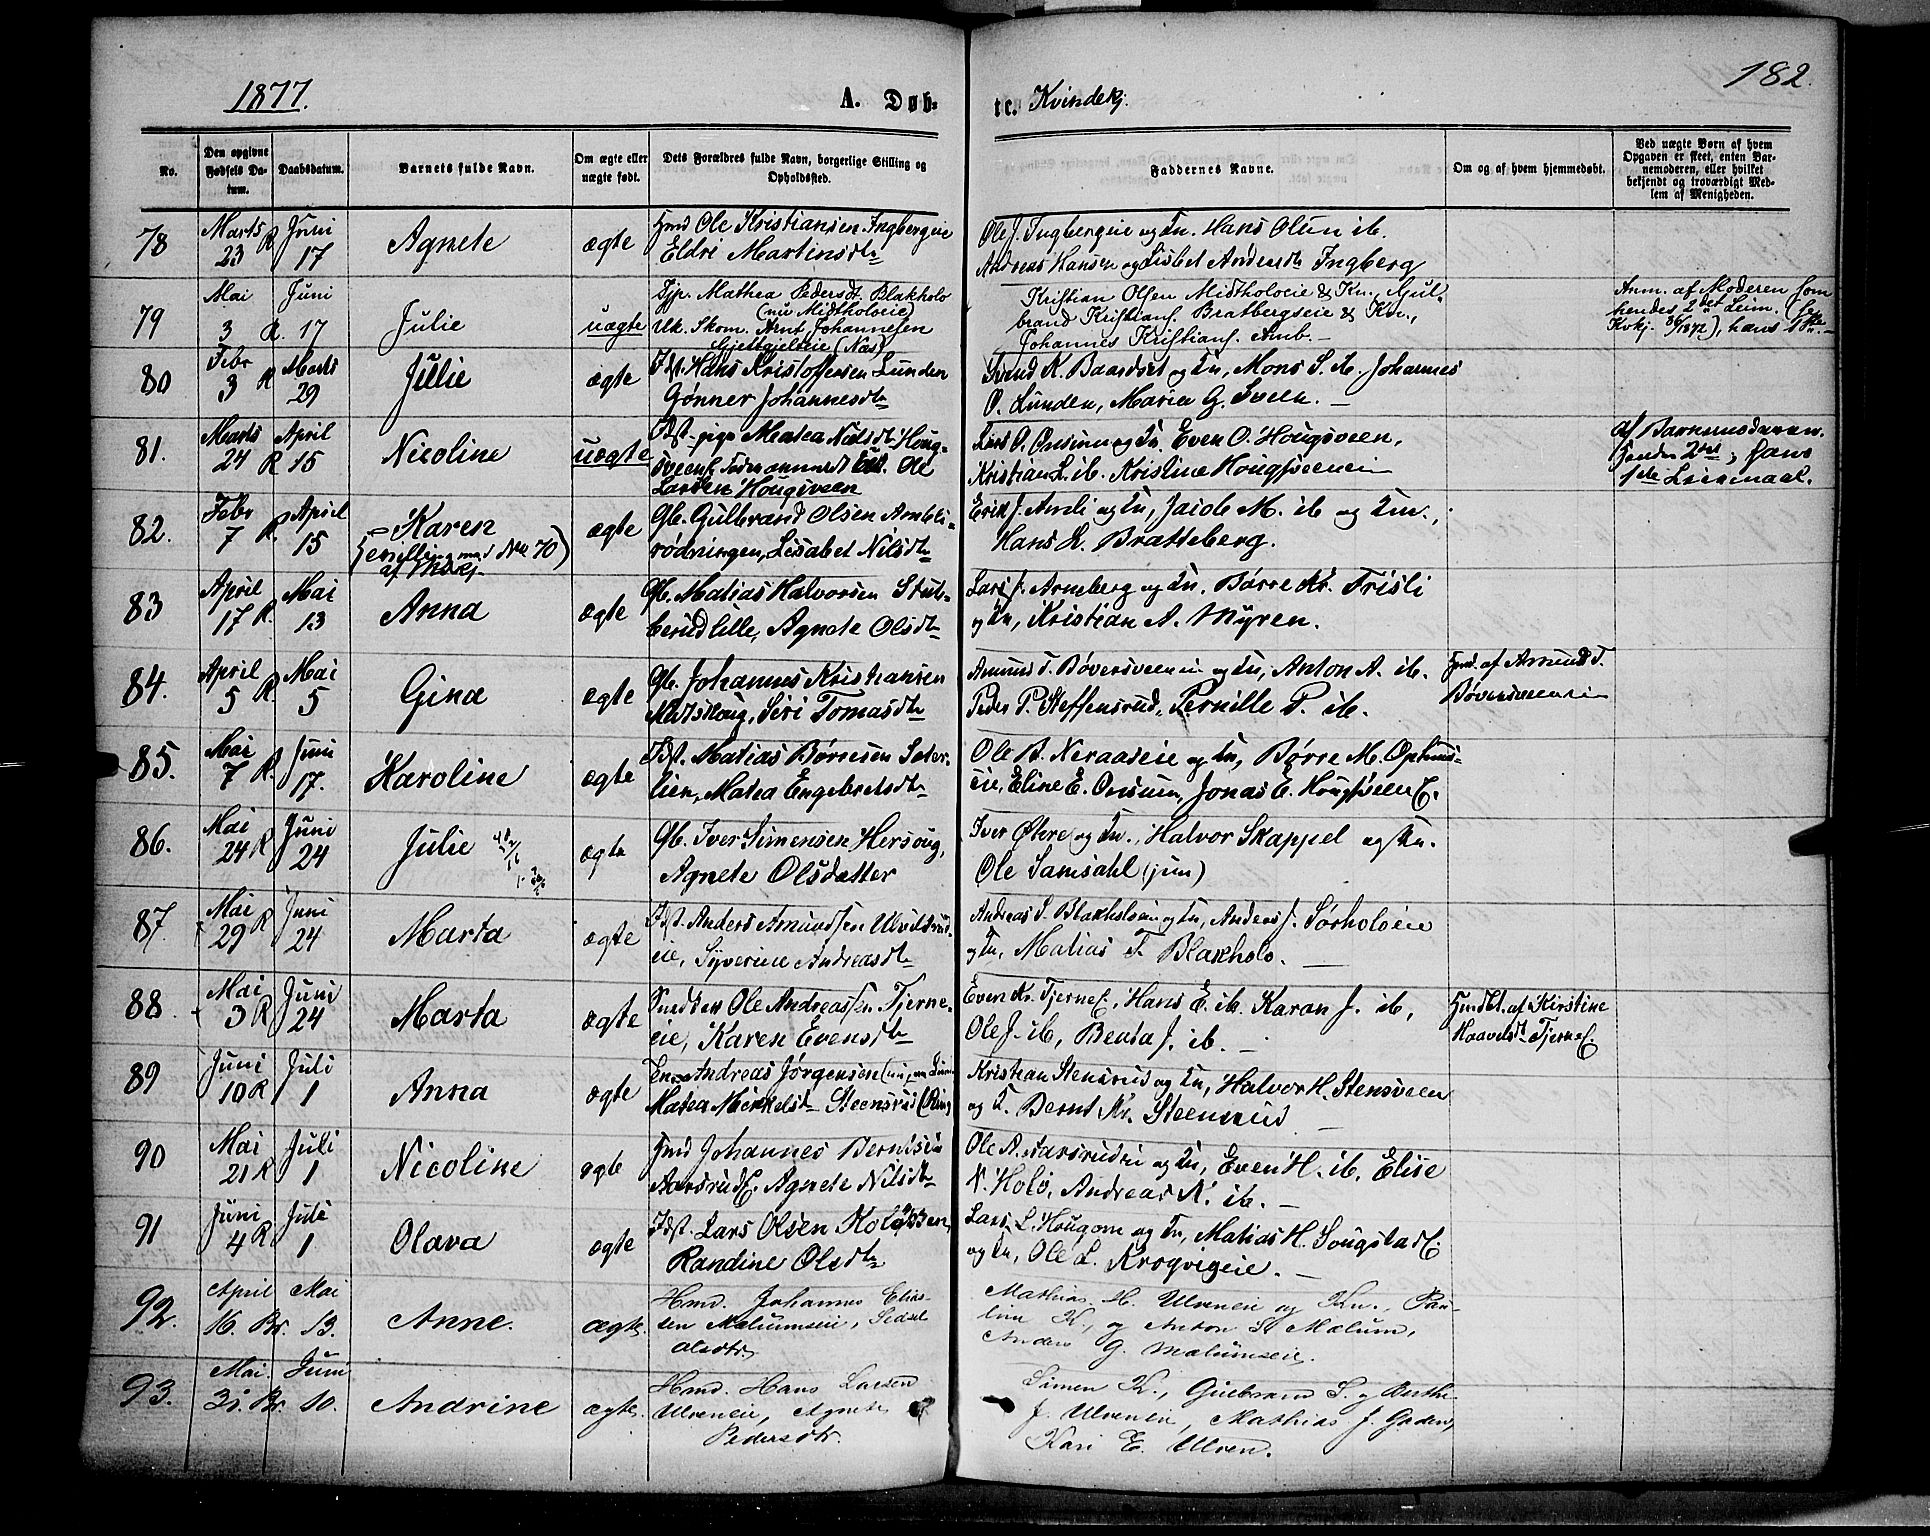 1877.
A. Døb-
te. Kvindekj.
182.
No.
Den opgivne Fødsels Datum.
Daabsdatum.
Barnets fulde Navn.
Om ægte eller uægte født.
Dets Forældres fulde Navn, borgerlige Stilling og Opholdssted.
Faddernes Navne.
Om og af hvem hjemmedøbt.
Ved uægte Børn af hvem Opgaven er skeet, enten Barnemoderen, eller hvilket bekjendt og troværdigt Medlem af Menigheden.
78
Marts 23 R
Juni 17
Agnete
ægte
Hmd Ole Kristiansen Ingbergeie
Eldri Martinsdtr
Ole J. Ingbergeie og Kn. Hans Olsen ib.
Andreas Hansen og Lisbet Andersdtr Ingberg
79
Mai 3 R.
Juni 17
Julie
uægte
Tjp. Mathea Pedersdt. Blakholo
(nu Midtholoeie)
Uk. Skom. Arnt Johannesen
Gjeltgjelseie (Næs)
Kristian Olsen Midtholoeie & Kn., Gul-
brand Kristians. Bratbergseie & Kn.,
Johannes Kristians. Amb. —
Anm. af Moderen som
hendes 2det Leierm.
80
Febr 3 R
Marts 29
Julie
ægte
Idst. Hans Kristoffersen Lunden
Gønner Johannesdtr
Svend K. Baardset og Kn, Mons S. ib. Johannes
O. Lunden, Maria G. Sveen. —
81.
Marts 24 R
April 15
Nicoline
uægte
Idst. pige Matea Nilsdtr Houg-
sveen
Ole
Larsen Hougsveen
Lars O. Onsum og Kn Even O. Hougsveen,
Kristian L. ib. Kristine Hougsveeneie
af Barnemoderen.
Hendes 2det, hans
1ste Leiermaal.
82.
Febr 7 R.
April 15
Karen
(Tvilling med No 70)
af Mkj.
ægte
Gb. Gulbrand Olsen Amble-
rødningen, Lisabet Nilsdtr
Erik J. Amli og Kn, Jacob M. ib og Kn.,
Hans L. Bratteberg.
83
April 17 R.
Mai 13
Anna
ægte
Gb. Matias Halvorsen Stuls-
berud lille, Agnete Olsdtr
Lars J. Arneberg og Kn. Børre Kr. Frisli
og Kn, Kristian A. Myren.
84.
April 5 R
Mai 5
Gina
ægte
Gb. Johannes Kristiansen
Matskoug, Siri Tomasdtr
Amund T. Bøversveeneie og Kn, Anton A. ib.
Peder P. Steffensrud, Pernille P. ib.
Hmd. af Amund T.
Bøversveeneie
85.
Mai 7 R.
Juni 17.
Karoline
ægte
Idst. Matias Børresen Seter-
lien, Matea Engebretsdtr
Ole B. Neraaseie og Kn, Børre M. Ophus-
eie, Eline E. Onsum, Jonas E. Hougsveen E.
86.
Mai 24 R
Juni 24
Julie
ægte
Gb. Iver Simensen Hersoug,
Agnete Olsdatter
Iver Øhre og Kn., Halvor Skappel og Kn.
Ole Samsahl (jun)
87.
Mai 29 R
Juni 24
Marta
ægte
Idst. Anders Amundsen Ulvilsrud-
eie, Syverine Andreasdtr
Andreas S. Blakholoeie og Kn, Andreas J. Sørholoeie
og Kn, Matias T. Blakholo. —
88
Mai 3 R
Juni 24
Marta
ægte
Smedsv Ole Andreassen Tjerne-
eie, Karen Evensdtr
Even Kr. Tjerne E., Hans E. ib. Karen J. ib,
Ole J. ib, Benta J. ib. —
Hmdbt. af Kirstine
Haavelsdt Tjerne E.
89
Juni 10 R
Juli 1
Anna
ægte
Andreas Jørgensen
Matea Mikkelsdtr Steensrud (Ring
Kristian Stensrud og Kn, Halvor H. Stensveen
og K. Bernt Kr. Steensrud —
90
Mai 21 R
Juli 1
Nicoline
ægte
Hmd Johannes Berntsen
Aarsrud E. Agnete Nilsdtr
Ole A. Aarsrudeie og Kn, Even H. ib, Elise
N. Holo, Andreas N. ib. —
91
Juni 4 R
Juli 1
Olava
ægte
Idst. Lars Olsen Koløkken,
Randine Olsdtr
Lars L. Hougom og Kn, Matias H. Sougstad E.
og Kn, Ole L. Krogvigeie. —
92.
April 16. Br.
Mai 13.
Anne.
ægte.
Hmd. Johannes Elias-
sen Mælumseie, Sidsel
Olsdtr.
Mathias H. Ulveneie og Kn., Pau-
line K., og Anton S. Mælum,
Anders G. Mælumseie.
93.
Mai 31. Br.
Juni 10.
Andrine
ægte.
Hmd. Hans Larsen
Ulveneie, Agnete
Pedersdtr.
Simen K., Gulbrand S. og Berthe
J. Ulveneie, Mathias J. Gaden,
Kari E. Ulven.